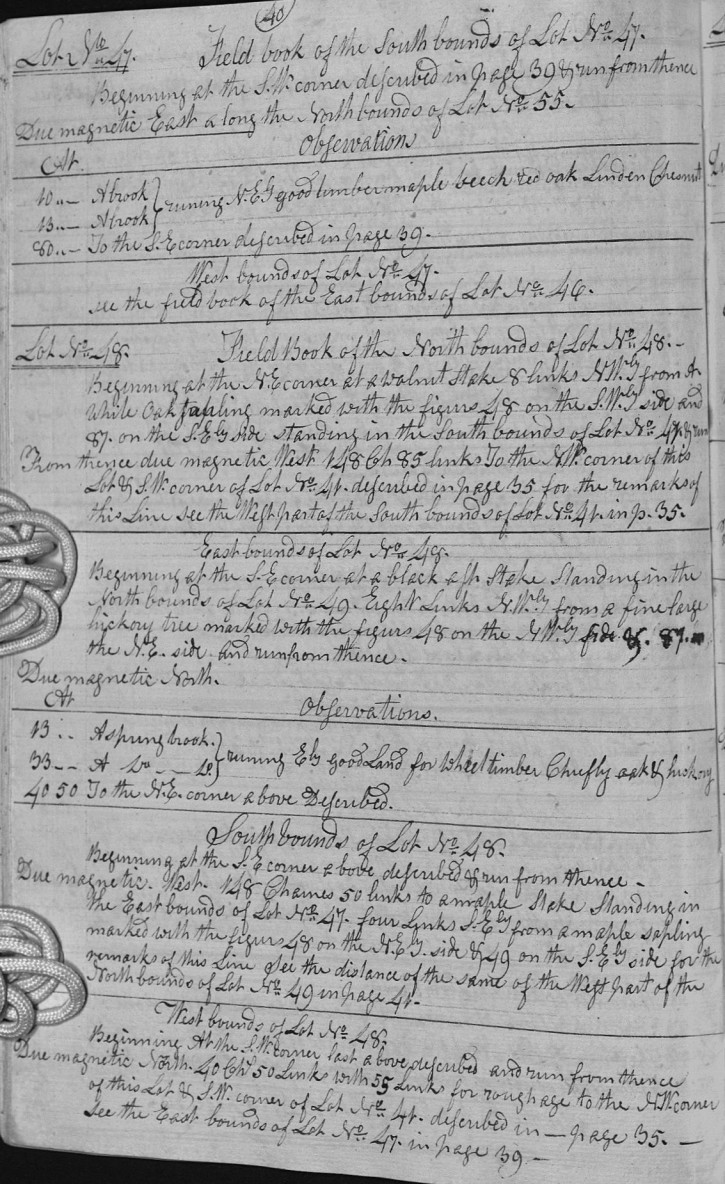 40
Lot No 47. Field book of the South bounds of Lot No 47.
Beginning at the S.W. corner described in page 39 & run from thence
Due magnetic East along the North bounds of Lot No 55.
At Observations
10 .. — A brook }
13 .. — A brook } runing N.Ely good timber maple beech red oak Linden Chesnut
80 .. — To the S.E corner described in page 39.
West bounds of Lot No 47.
see the field book of the East bounds of Lot No 46.
Lot No 48. Field Book of the North bounds of Lot No 48. —
Beginning at the N.E corner at a walnut Stake 8 links N.Wrly from A
While Oak Sapling marked with the figurs 48 on the S.Wrly side and
87. on the S.Ely side standing in the South bounds of Lot No 41 & run
From thence due magnetic West 148 Ch 85 links To the N.W. corner of this
Lot & S.W. corner of Lot No 41. described in page 35 for the remarks of
this Line see the West part of the South bounds of Lot No 41. in p. 35.
East bounds of Lot No 48.
Beginning at the S.E corner at a black ash Stake Standing in the
North bounds of Lot No 49. Eight Links N.Wrly from a fine large
hickory tree marked with the figurs 48 on the N Wrly side & 87.
the N.E. side and run from thence.
Due magnetic North.
At Observations.
13 .. A spring brook. }
33 — A Do — Do } runing Ely good Land for Wheet timber Chiefly oak & hickory
40 50 To the N.E. corner above Described.
South bounds of Lot No 48.
Beginning at the S.E corner above described & run from thence —
Due magnetic. West. 148 Chaines 50 links to a maple Stake Standing in
the East bounds of Lot No 47. four Links S.Ely from a maple sapling
marked with the figurs 48 on the N.Ely. side & 49 on the S.Ely side for the
remarks of this Line see the distance of the same of the West part of the
North bounds of Lot No 49 in page 41.
West bounds of Lot No 48.
Beginning At the S.W. corner last above described and run from thence
Due magnetic North. 40 Chs 50 Links with 55 Links for roughage to the N.W. corner
of this Lot & S.W. corner of Lot No 41. described in — page 35. —
see the East bounds of Lot No 47 in page 39 —